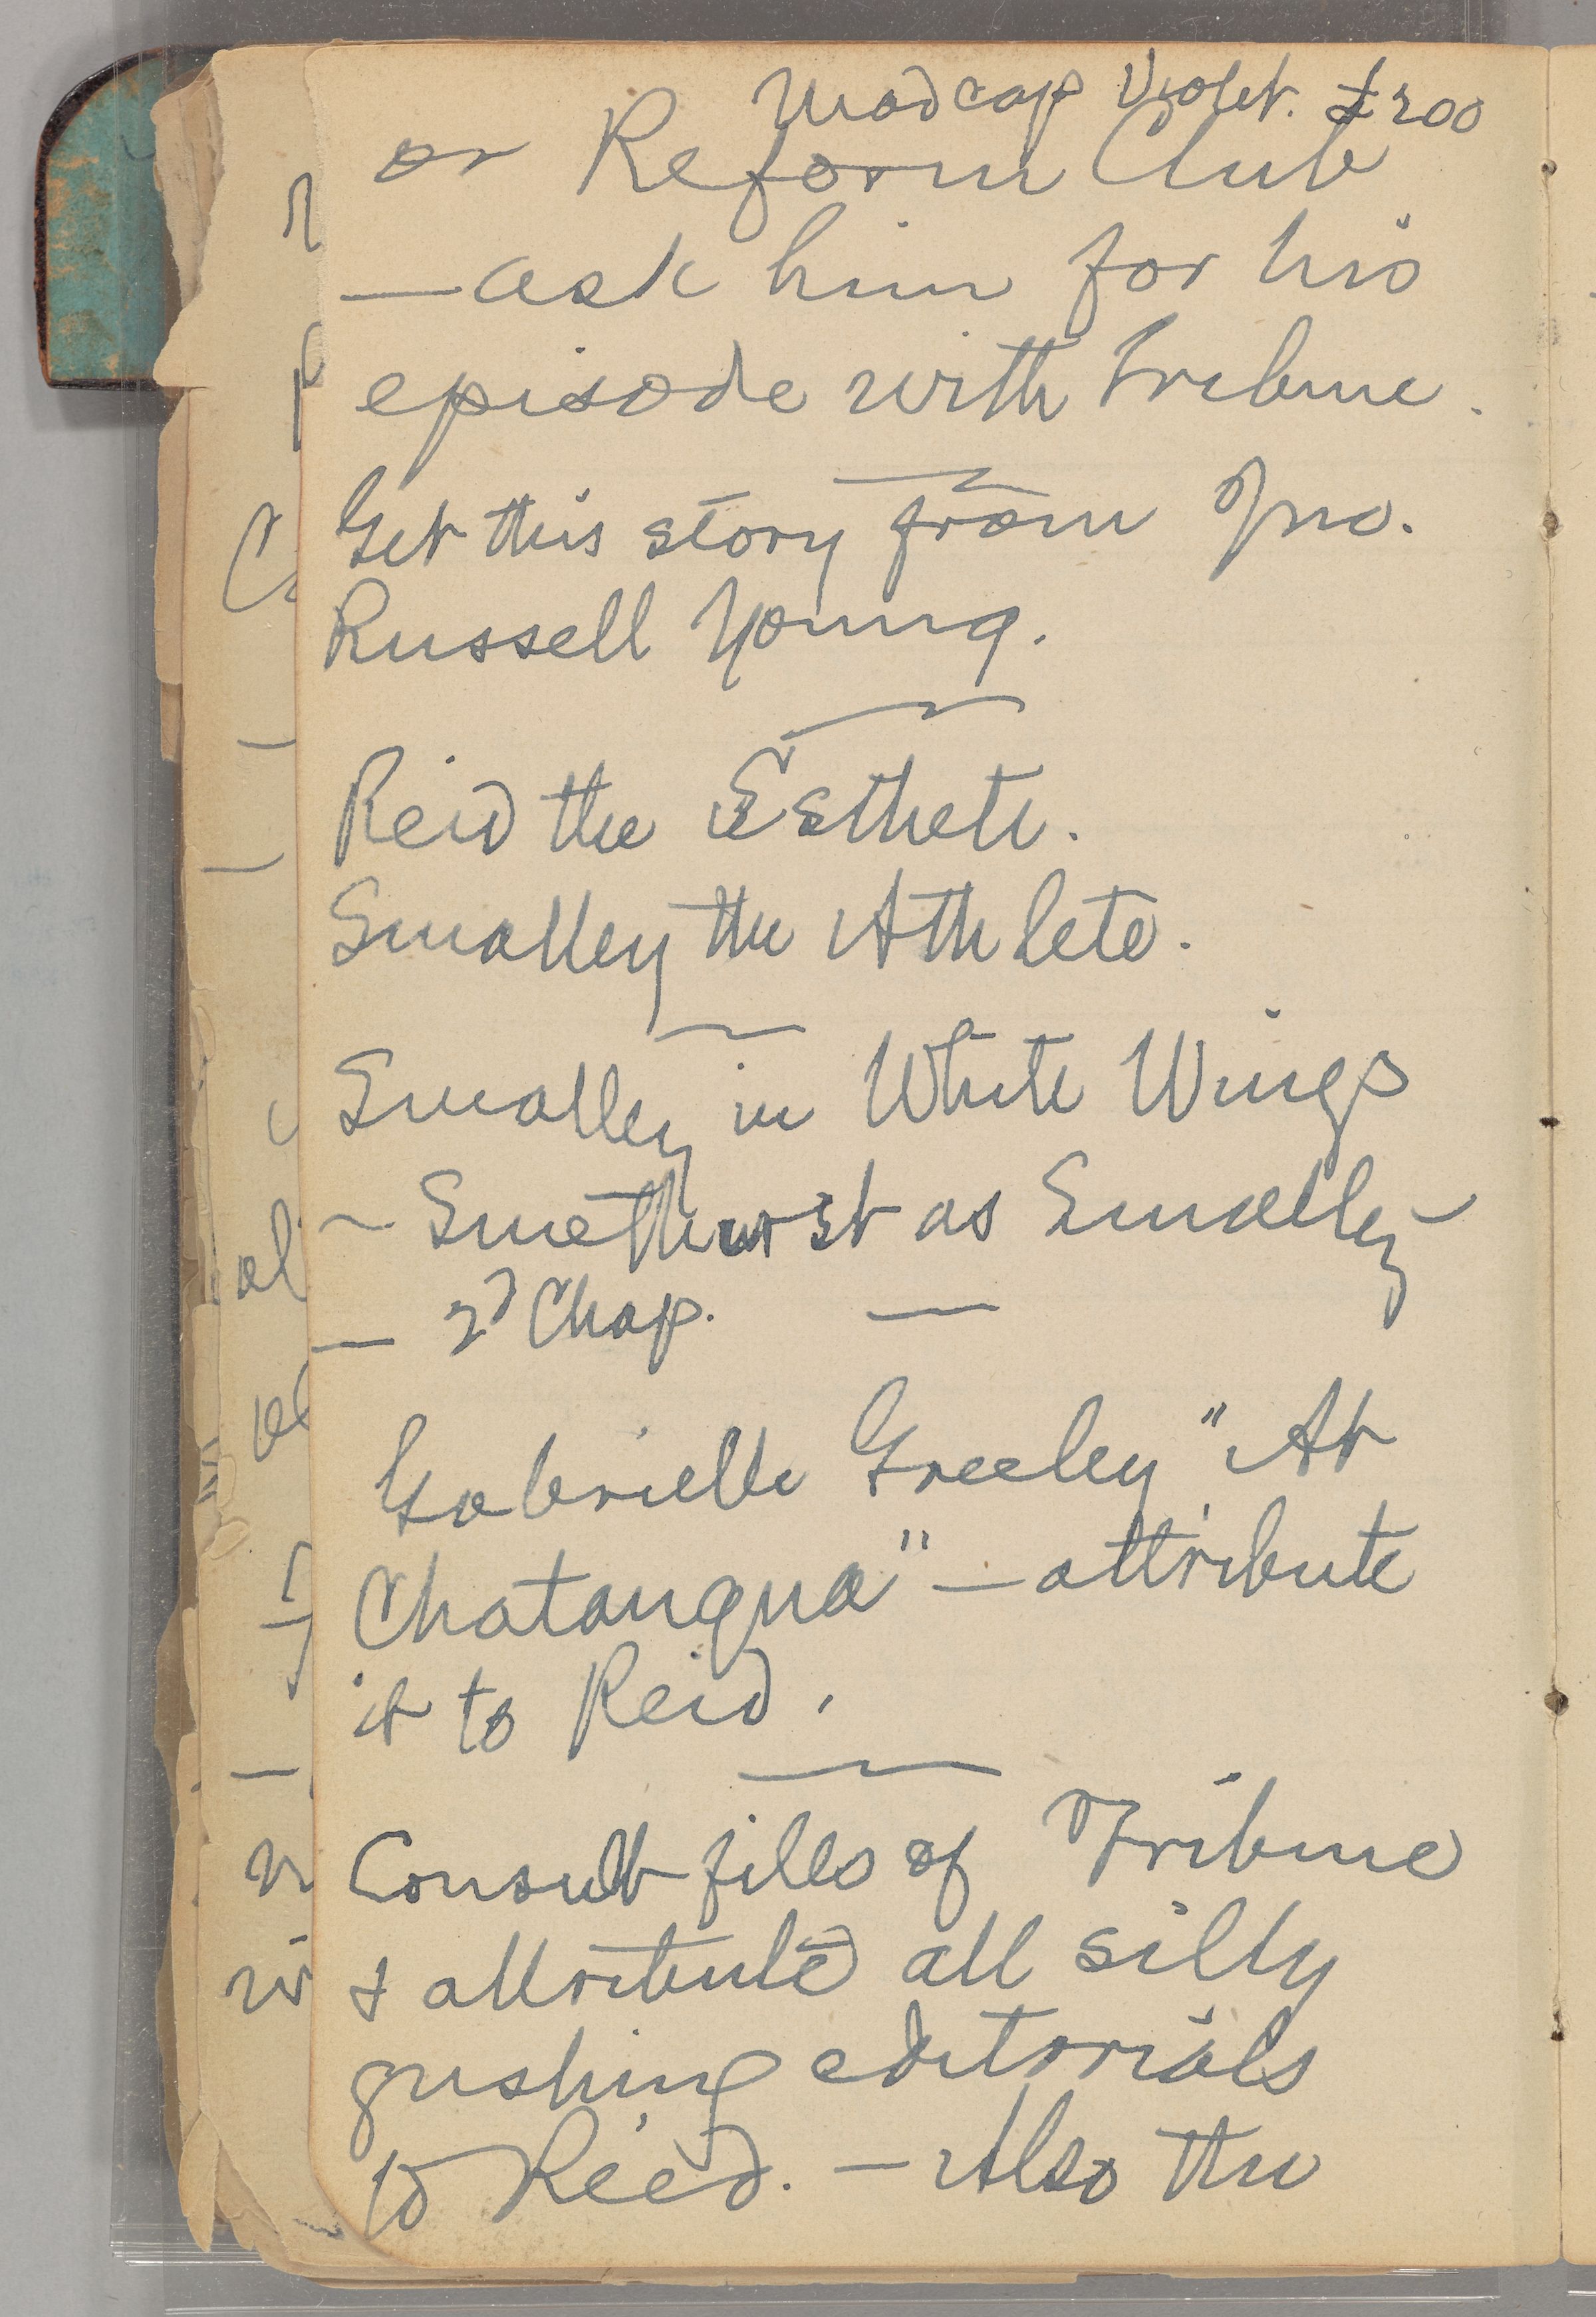 Madcap Violet. £200
or Reform Club
— ask him for his
episode with Tribune.
Get this story from Jno.
Russell Young.
Reid the Esthete.
Smalley the Athlete.
Smalley in White Wings
— Smethurst as Smalley —
— 2d Chap. —
Gabrielle Greeley "At
Chatauqua" — attribute
it to Reid.
Consult files of Tribune
& attribute all silly
gushing editorials
to Reed. — Also the